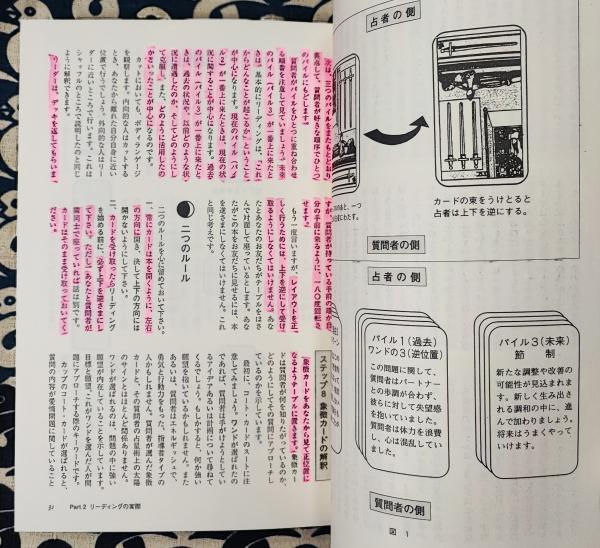 次は、三つのパイルをまたもとどおり
のパイルにもどします。
質問者がパイルをひとつに重ね合わせ
る順番を注意して見ていましょう。「未来
のパイル（パイル3）が一番上に来たと
きは、基本的にリーディングは、「これ
からどんなことが起こるか」ということ
が中心になります。現在のパイル（パイ
ル2）が一番上に来たときは、現在の状
況に関することが中心になります。過去
のパイル（パイル1）が一番上に来たと
きは、過去の状況や、以前どのような状
況に遭遇したのか、そしてどのようにし
て克服し、また、どのように活用したの
かといったことが中心になるのです。
カットにおいても、ボディランゲージ
を観察します。内向的な人はカットする
とき、あなたから離れた自分自身に近い
位置で行うでしょう。外向的な人はリー
ダーに近いところで行います。これは
シャッフルのところで説明したのと同じ
ように解釈できます。
リーダーは、デッキを返してもらいま
すが、質問者が持っている手前の端が自
分の手前に来るように、一八〇度回転さ
せます。
もう一度言いますが、レイアウトを正
しく行うためには、上下を逆にして受け
取るようにしなくてはいけません。あな
たとあなたのお友だちがテーブルをはさ
んで対面して座っているとします。あな
たがこの本をお友だちに見せるには、本
を逆さまにしなくてはいけません。これ
と同じ考えです。
二つのルール
二つのルールを心に留めておいて下さい。
一、常にカードは本を開くように、左右
の方向に開き、決して上下の方向には
開かないようにして下さい。
二、カードを受け取ったらリーディング
を始める前に、必ず上下を逆さまにし
て下さい。ただし、あなたと質問者が
隣同士で座っていれば話は別です。
カードはそのまま受け取っておいてく
ださい。
ステップ8 象徴カードの解釈
象徴カードをあなたから見て正位置に
なるようテーブルに置きます。象徴カー
ドは質問者が何を知りたがっているのか、
どのようにしてその質問にアプローチし
ているのかを示しています。
最初に、コート・カードのスートに注
意してみましょう。ワンドが選ばれたの
であれば、質問者は手がけようとしてい
るアイデアあるいは計画について尋ねて
くるでしょう。もしかすると、何か強い
願望を抱いているかもしれません。また
あるいは、質問者はエネルギッシュで、
勇気と行動力をもった、指導者タイプの
人かもしれません。質問者が選んだ象徴
カードと、その質問者の占星術上の太陽
のサインとはほとんど関係ありません。
ワンドが選ばれるのは、質問の中に強い
願望が内在していることを示しています。
目標と願望、これがワンドを選んだ人が問
題にアプローチする際のキーワードです。
カップのコート・カードが選ばれると、
質問の内容が愛情問題に関していること
31 Part 2 リーディングの実際
占者の側
カードの束をうけとると
占者は上下を逆にする。
質問者の側
占者の側
パイル1（過去）
ワンドの3（逆位置）
この問題に関して、
質問者はパートナー
との歩調が合わず、
彼らに対して失望感
を抱いていました。
質問者は体力を浪費
し、心は混乱してい
ました。
パイル3（未来）
節 制
新たな調整や改善の
可能性が見込まれま
す。新しく生み出さ
れる調和の中に、進
んで加わりましょう。
将来はうまくやって
いけます。
質問者の側
図 1